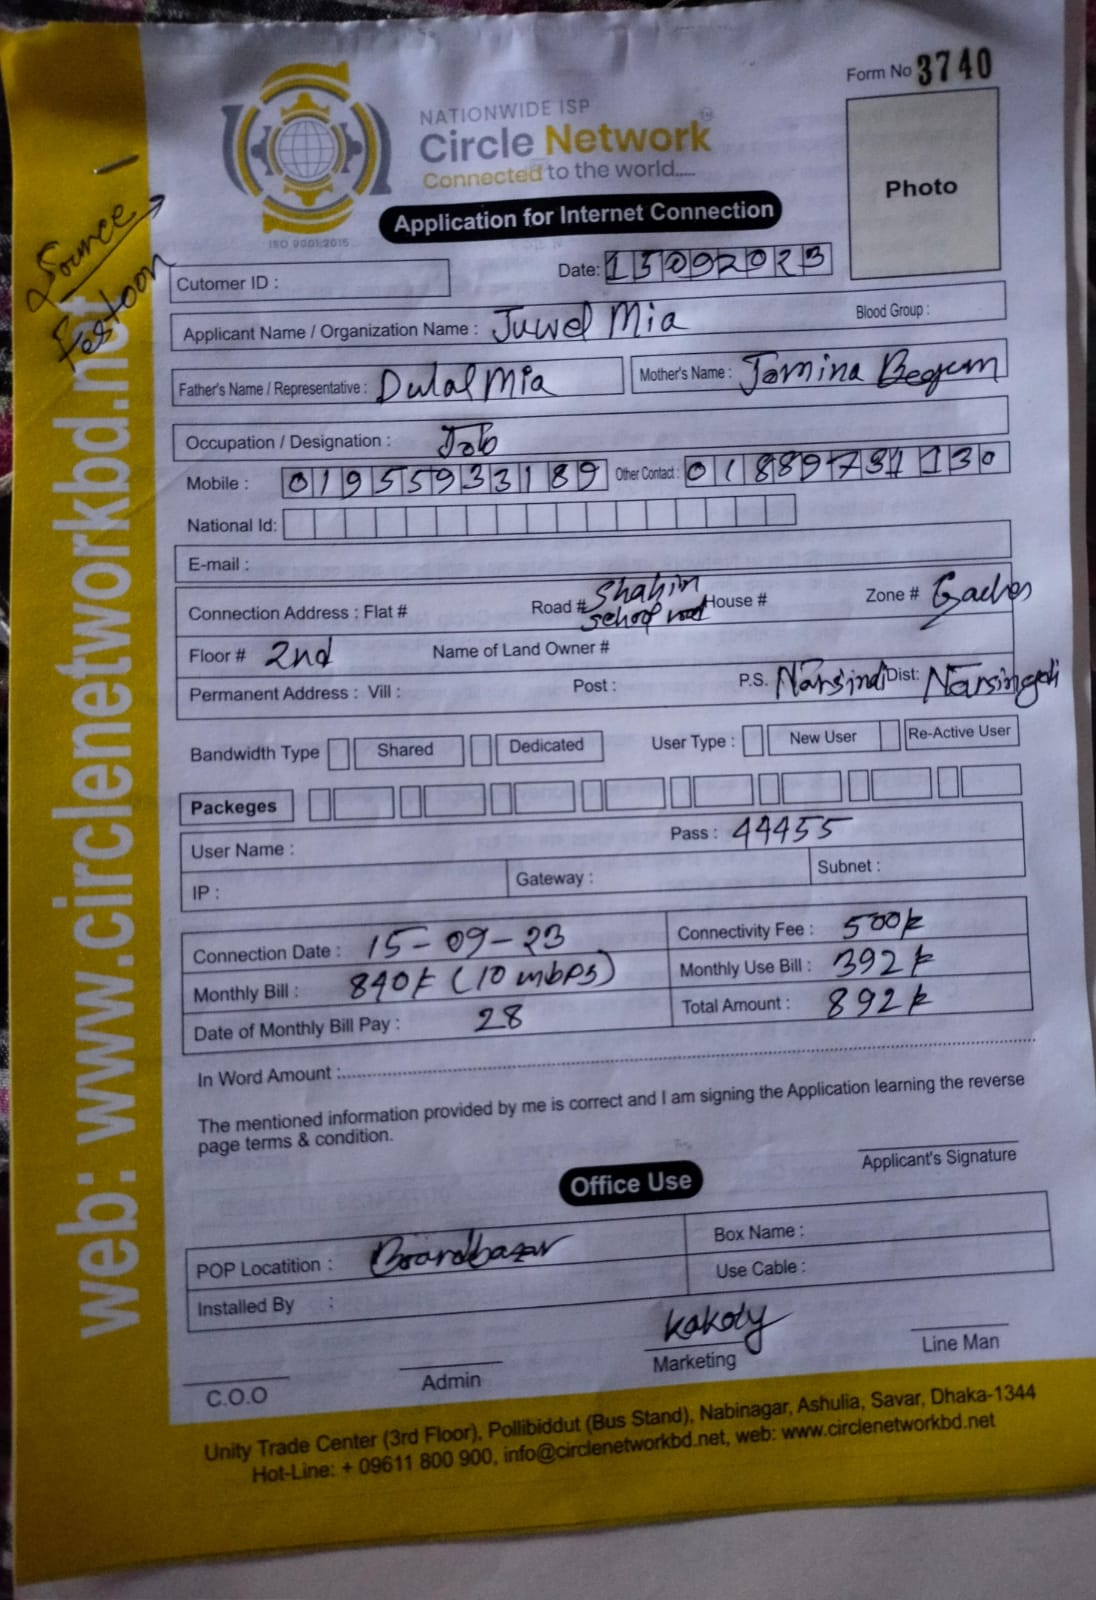 Form No 3740
NATIONWIDE ISP
Circle Network
Connected to the world.....
ISO 9001:2015
Application for Internet Connection
Photo
Source
Festoon
web: www.circlenetworkbd.net
Cutomer ID :
Date: 15092023
Applicant Name / Organization Name : Juwel Mia Blood Group :
Father's Name / Representative : Dulal Mia Mother's Name : Jomina Begum
Occupation / Designation : Job
Mobile : 01955933189 Other Contact : 01889731130
National Id:
E-mail :
Connection Address : Flat # Road # Shahin School road House # Zone #
Floor # 2nd Name of Land Owner #
Permanent Address : Vill : Post : P.S. Narsindi Dist: Narsingdi
Bandwidth Type Shared Dedicated User Type : New User Re-Active User
Packeges
User Name : Pass : 44455
IP : Gateway : Subnet :
Connection Date : 15-09-23 Connectivity Fee : 500৳
Monthly Bill : 840৳ (10 mbps) Monthly Use Bill : 392৳
Date of Monthly Bill Pay : 28 Total Amount : 892৳
In Word Amount :
The mentioned information provided by me is correct and I am signing the Application learning the reverse
page terms & condition.
Applicant's Signature
Office Use
POP Locatition : Boardbazar Box Name :
Installed By : Use Cable :
kakoly
C.O.O Admin Marketing Line Man
Unity Trade Center (3rd Floor), Pollibiddut (Bus Stand), Nabinagar, Ashulia, Savar, Dhaka-1344
Hot-Line: + 09611 800 900, info@circlenetworkbd.net, web: www.circlenetworkbd.net